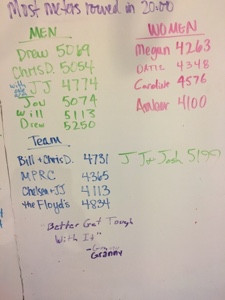 Most meters rowed in 20:00
MEN
Drew 5069
Chris D. 5054
JJ 4774
Jay 5074
Will 5113
Drew 5250
WOMEN
Megan 4263
Katie 4348
Caroline 4576
Amber 4100
Team
Bill + Chris D. 4731
MPRC 4365
Chelsea + JJ 4113
the Floyd's 4834
JJ + Josh 5199
"Better Get Tough
With It"
Granny